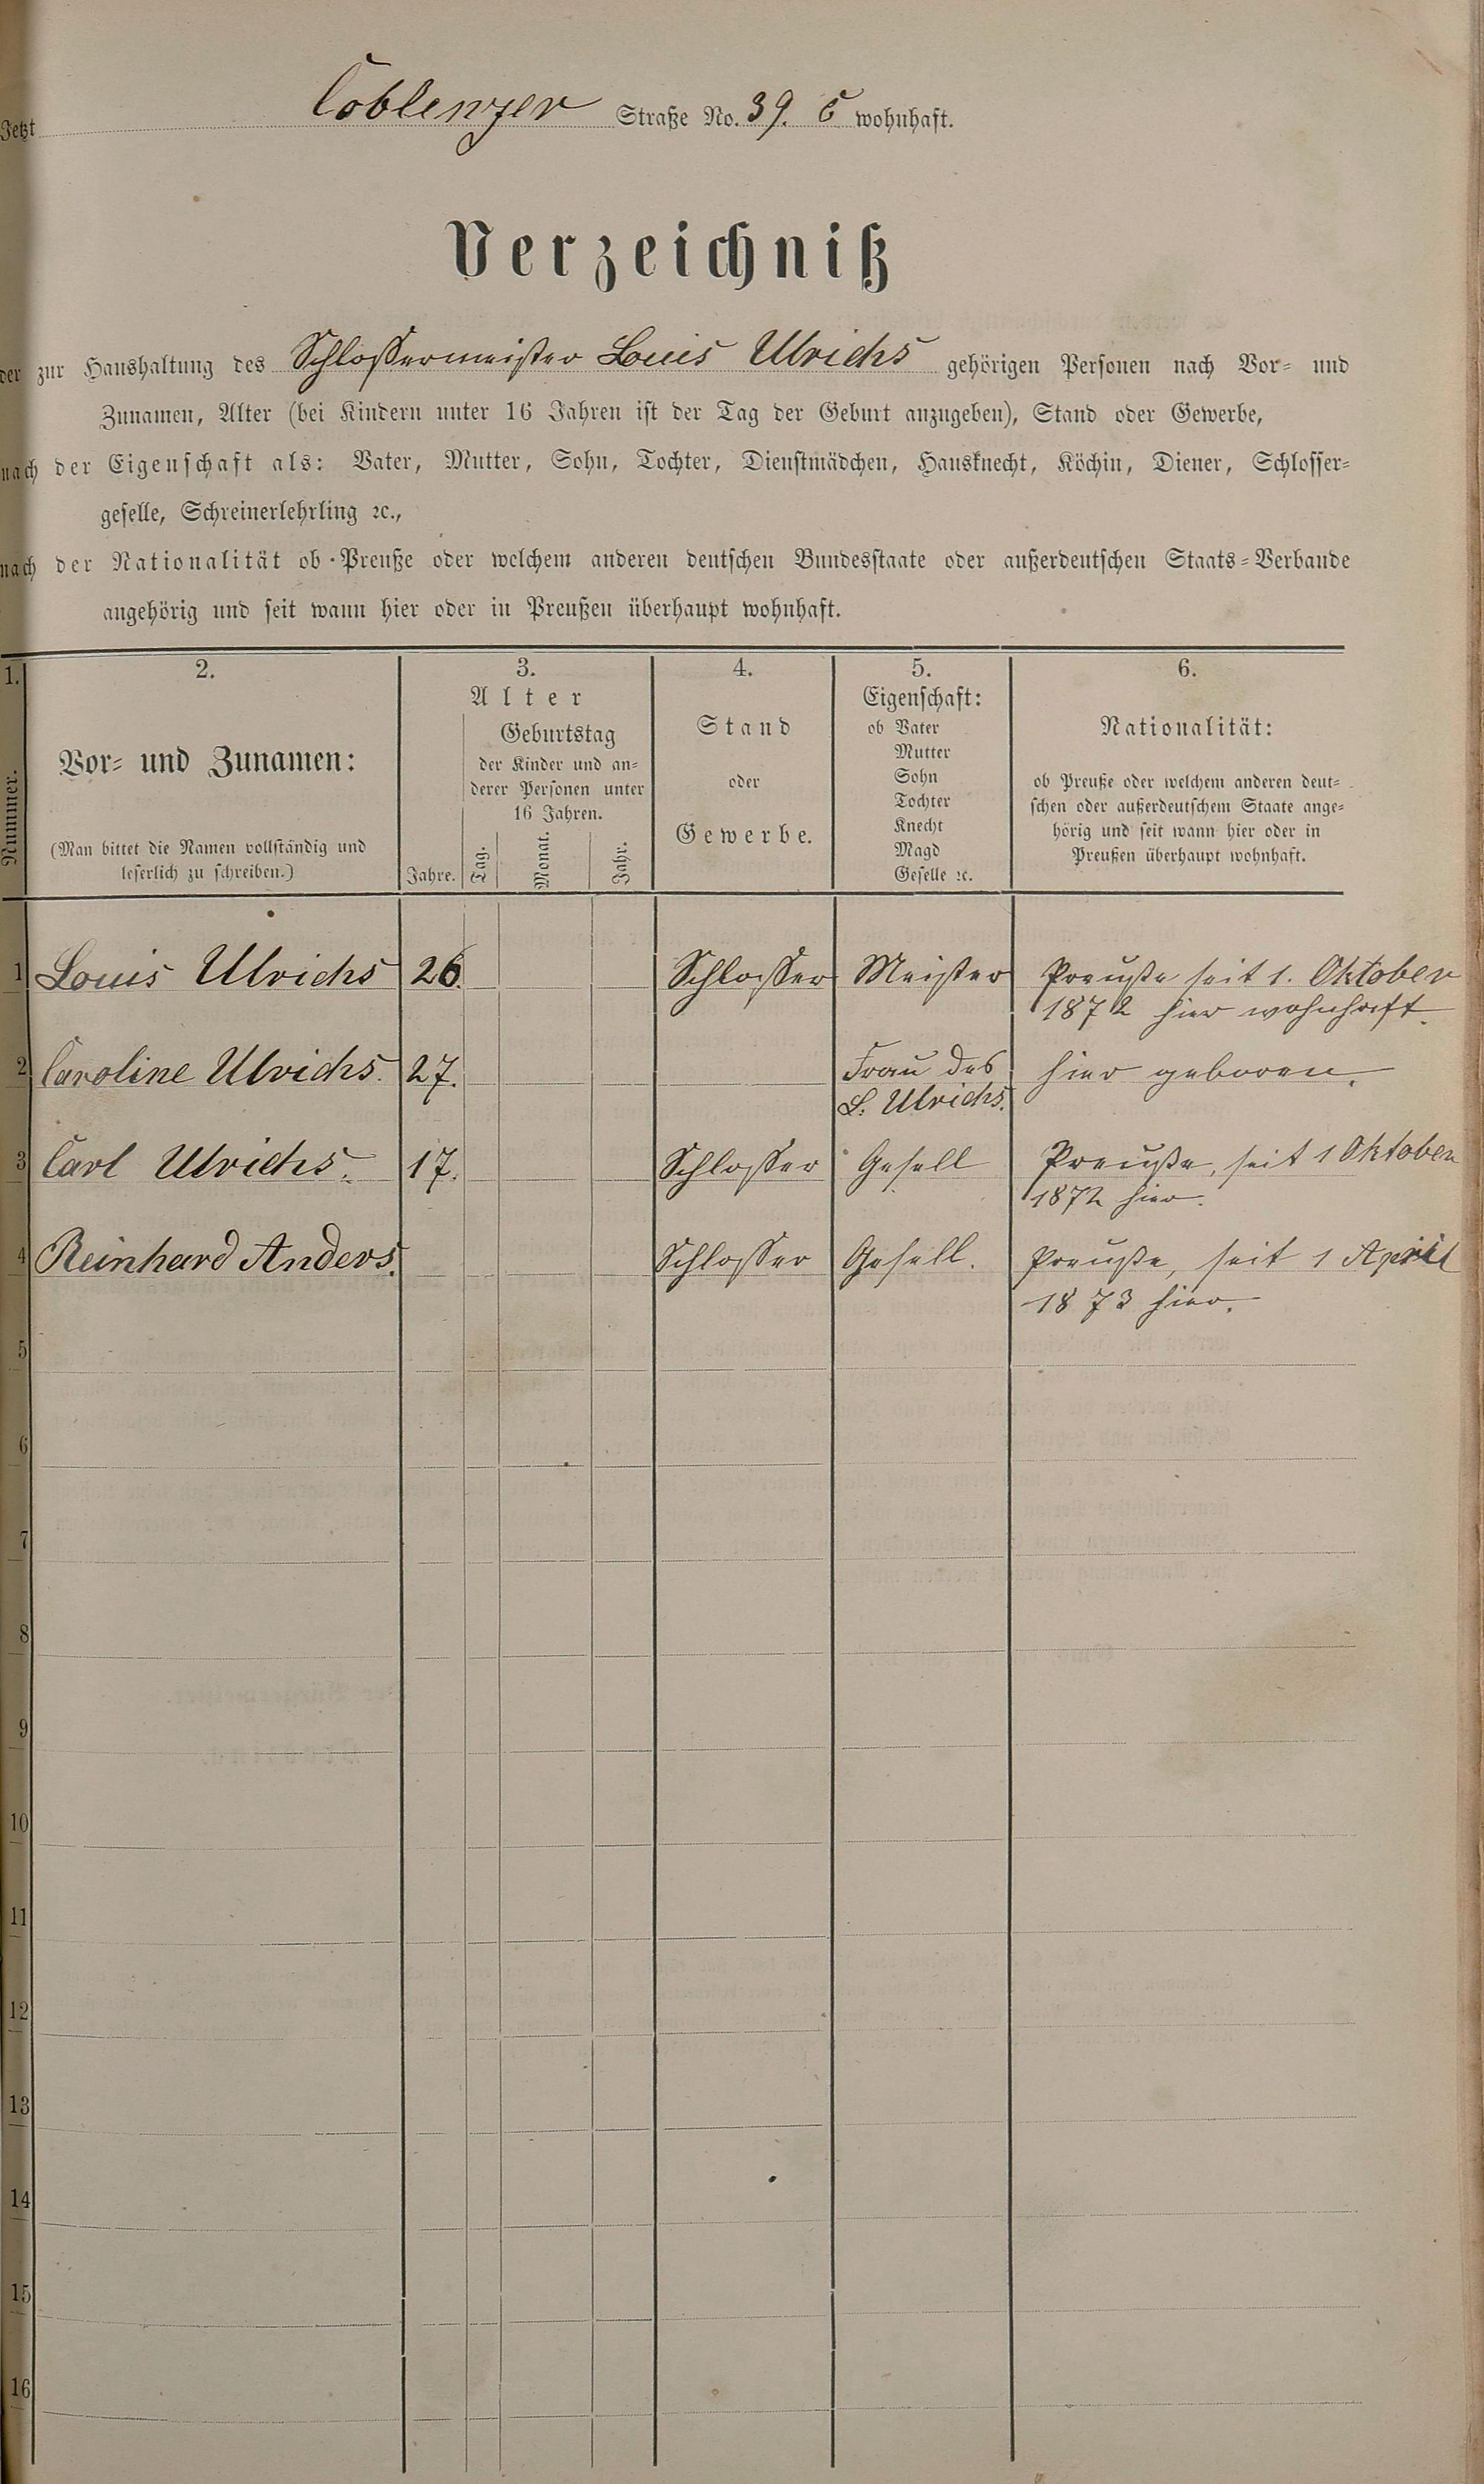 Jetzt Coblenzer Straße No. 39. c wohnhaft.
Verzeichniß
der zur Haushaltung des Schlossermeister Louis Ulrichs gehörigen Personen nach Vor- und
Zunamen, Alter (bei Kindern unter 16 Jahren ist der Tag der Geburt anzugeben), Stand oder Gewerbe,
nach der Eigenschaft als: Vater, Mutter, Sohn, Tochter, Dienstmädchen, Hausknecht, Köchin, Diener, Schlosser-
geselle, Schreinerlehrling ꝛc.,
nach der Nationalität ob Preuße oder welchem anderen deutschen Bundesstaate oder außerdeutschen Staats-Verbande
angehörig und seit wann hier oder in Preußen überhaupt wohnhaft.
1. 2. 3. 4. 5. 6.
Nummer.
Vor- und Zunamen:
(Man bittet die Namen vollständig und
leserlich zu schreiben.)
Alter
Jahre.
Geburtstag
der Kinder und an-
derer Personen unter
16 Jahren.
Tag. Monat. Jahr.
Stand
oder
Gewerbe.
Eigenschaft:
ob Vater
Mutter
Sohn
Tochter
Knecht
Magd
Geselle ꝛc.
Nationalität:
ob Preuße oder welchem anderen deut-
schen oder außerdeutschem Staate ange-
hörig und seit wann hier oder in
Preußen überhaupt wohnhaft.
1 Louis Ulrichs 26. Schlosser Meister Preuße seit 1. Oktober
1872 hier wohnhaft.
2 Caroline Ulrichs. 27. Frau des hier geboren.
L. Ulrichs.
3 Carl Ulrichs. 17. Schlosser Gesell Preuße, seit 1 Oktober
1872 hier.
4 Reinhard Anders. Schlosser Gesell. Preuße, seit 1 April
1873 hier.
5
6
7
8
9
10
11
12
13
14
15
16